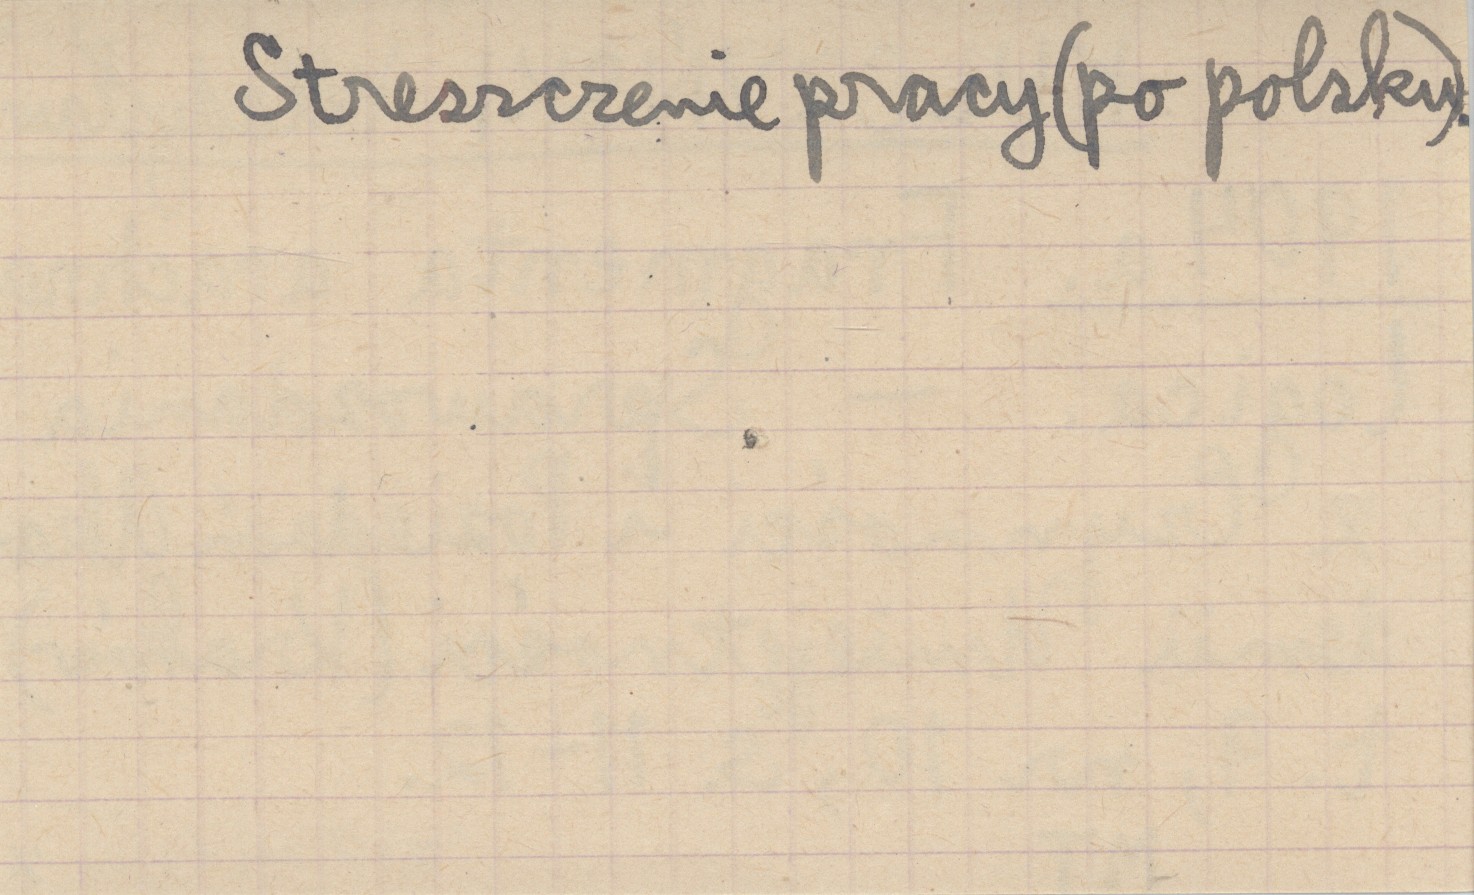 Streszczenie pracy (po polsku).